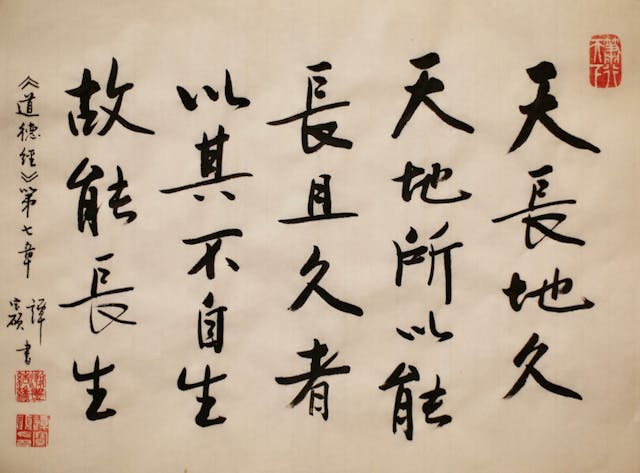 天長地久
天地所以能
長且久者
以其不自生
故能長生
《道德經》第七章
譚 書